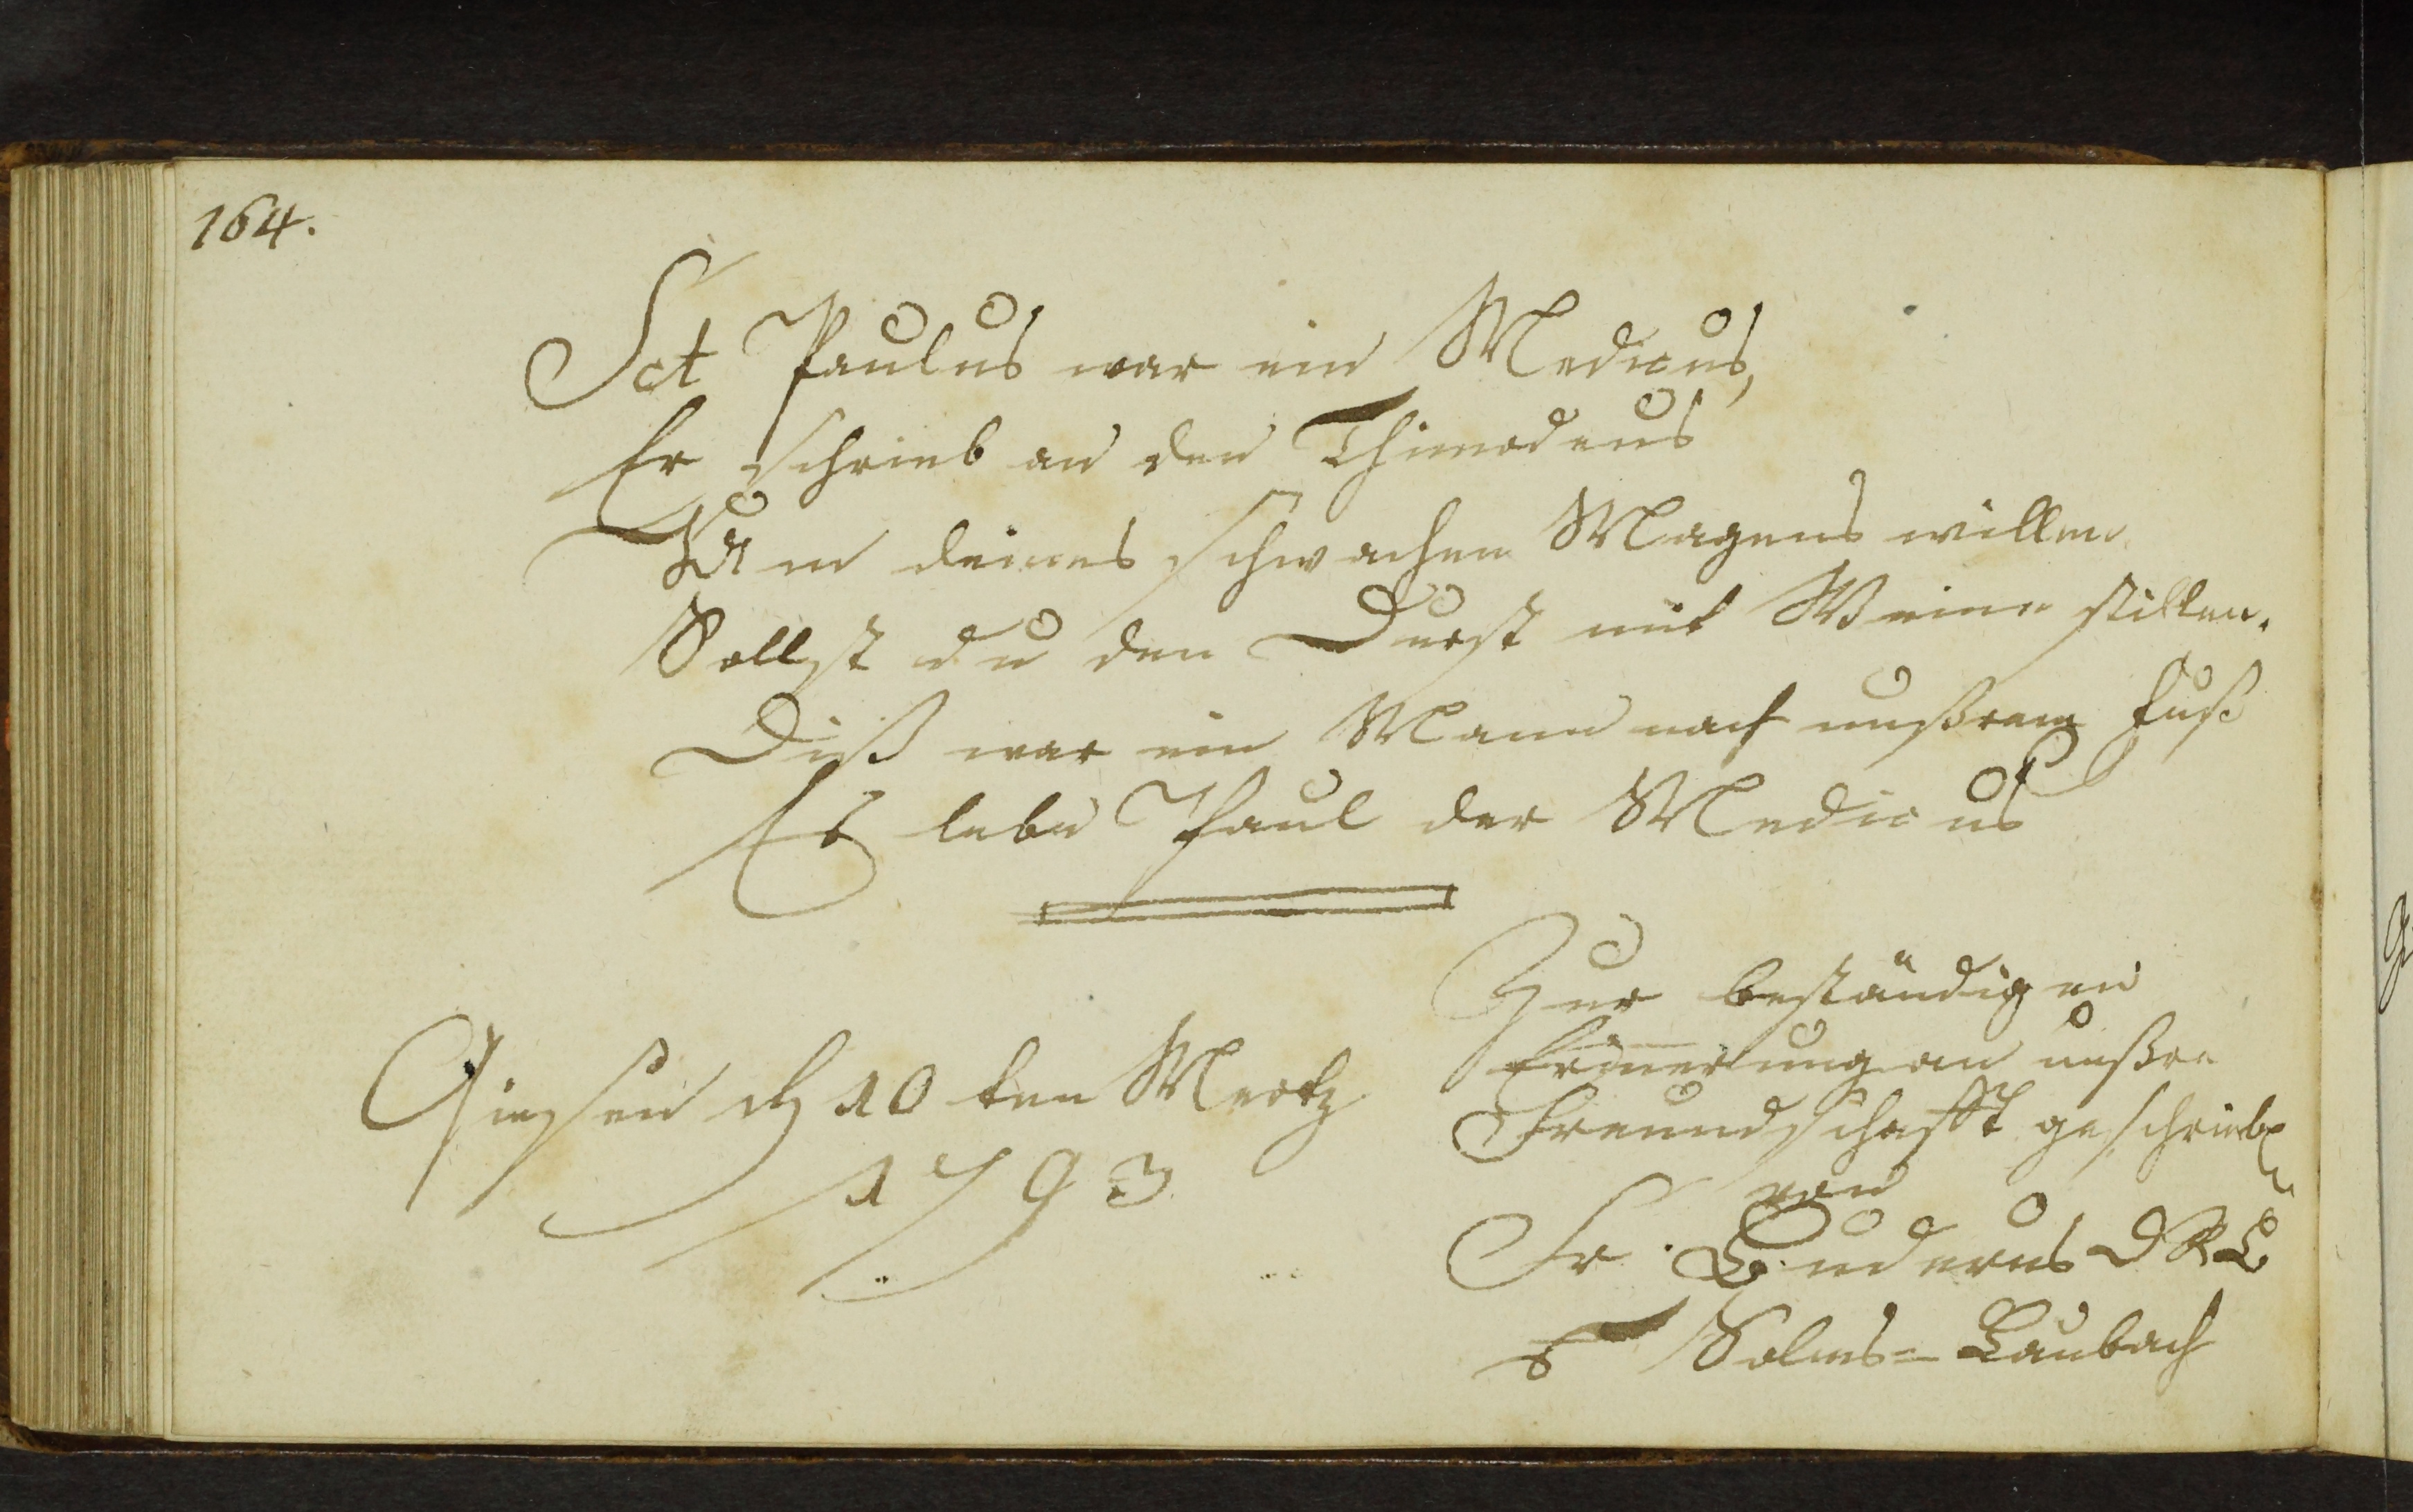 164.
Sct Paulus war ein Medicus,
Er schrieb an den Thimodeus
Um deines schwachen Magens willen
Sollst du den Durst mit Weine stillen.
Diß war ein Mann nach unßrem Fuß
Es lebe Paul der Medicus
Giesen d 10 ten Mertz
1793
Zur beständigen
Erinnerung an unßre
Freundschafft geschrieben
von
Fr. Buderus d R B
Solms-Laubach